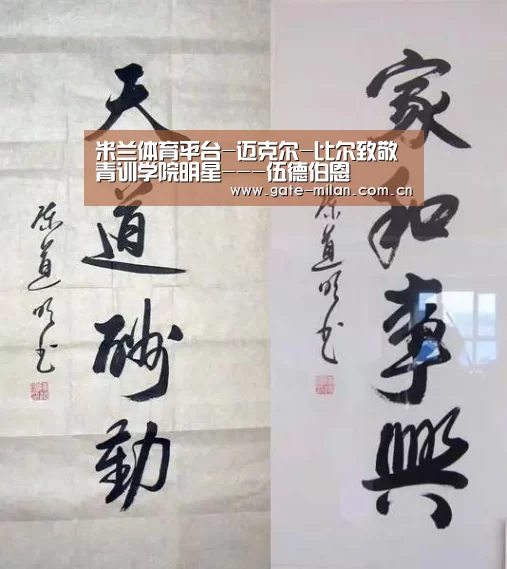 米兰体育平台-迈克尔-比尔致敬
青训学院明星---伍德伯恩
www.gate-milan.com.cn
天道酬勤
陈道明书
家和事興
陈道明书